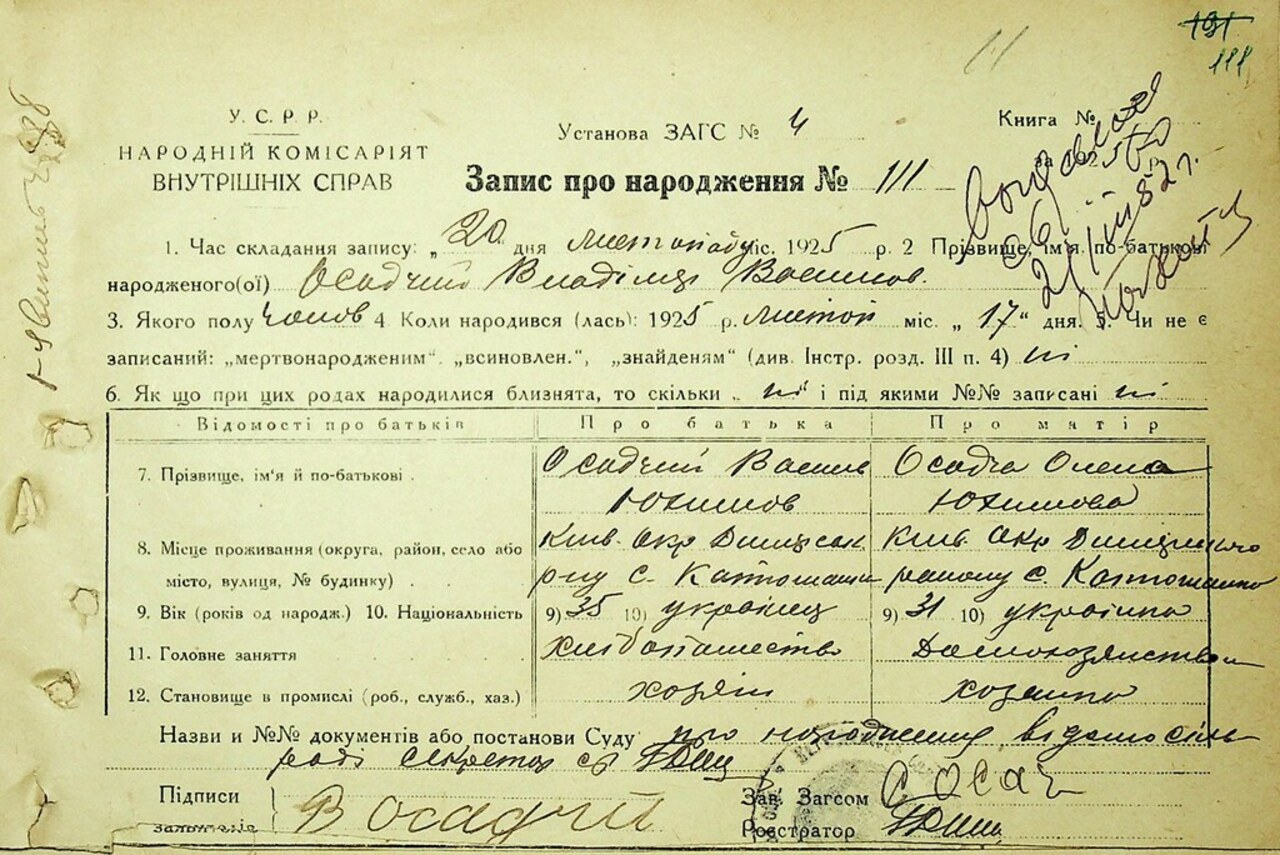 191
111
У. С. Р. Р.
НАРОДНІЙ КОМІСАРІЯТ
ВНУТРІШНІХ СПРАВ
Установа ЗАГС № 4
Книга №
Запис про народження № 111
1. Час складання запису: „20" дня листопаду міс. 1925 р. 2 Прізвище, ім'я, по-батькові
народженого(ої) Осадчий Владімір Васильов.
3. Якого полу чолов 4. Коли народився (лась): 1925 р. листоп міс. „17" дня. 5. Чи не є
записаний: „мертвонародженим". „всиновлен.", „знайденям" (див. Інстр. розд. III п. 4) ні
6. Як що при цих родах народилися близнята, то скільки „ні" і під якими №№ записані ні
Відомості про батьків Про батька Про матір
7. Прізвище, ім'я й по-батькові . Осадчий Василь Юхимов Осадча Олена Юхимова
8. Місце проживання (округа, район, село або
місто, вулиця, № будинку) . . Київ. Окр р-ну с. Київ. Окр району с.
9. Вік (років од народж.) 10. Національність 9) 35 10) українец 9) 31 10) українка
11. Головне заняття . . . . Хлібопашество Домохозяйством
12. Становище в промислі (роб., служб., хаз.) хозяїн хозяйка
Назви и №№ документів або постанови Суду про народження, відом сіль
ради секретар
Підписи В Осадчий
Зав. Загсом
Реєстратор